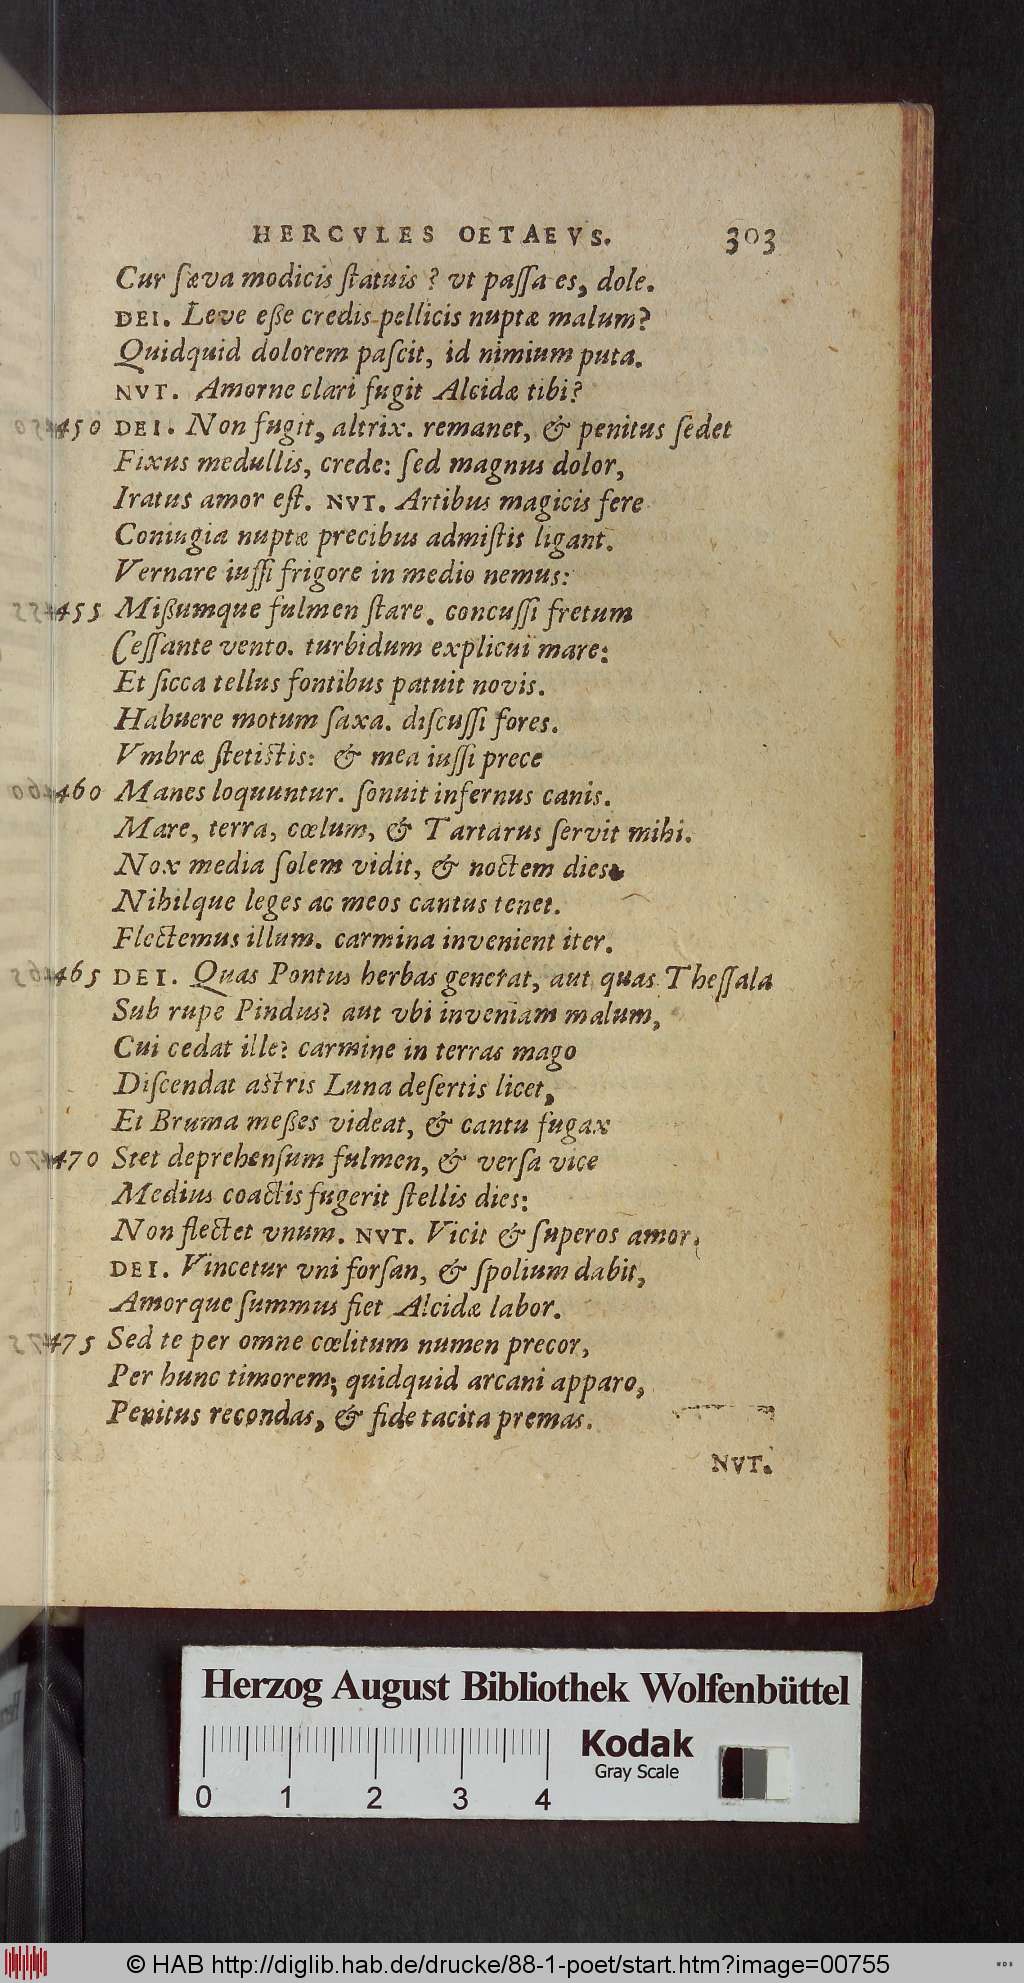 HERCVLES OETAEVS. 303
Cur sæva modicis statuis? vt passa es, dole.
DEI. Leve eße credis pellicis nuptæ malum?
Quidquid dolorem pascit, id nimium puta.
NVT. Amorne clari fugit Alcidæ tibi?
450 DEI. Non fugit, altrix. remanet, & penitus sedet
Fixus medullis, crede: sed magnus dolor,
Iratus amor est. NVT. Artibus magicis fere
Coniugia nuptæ precibus admistis ligant.
Vernare iussi frigore in medio nemus:
455 Mißumque fulmen stare. concussi fretum
Cessante vento. turbidum explicui mare:
Et sicca tellus fontibus patuit novis.
Habuere motum saxa. discussi fores.
Vmbræ stetistis: & mea iussi prece
460 Manes loquuntur. sonuit infernus canis.
Mare, terra, cœlum, & Tartarus servit mihi.
Nox media solem vidit, & noctem dies.
Nihilque leges ac meos cantus tenet.
Flectemus illum. carmina invenient iter.
465 DEI. Quas Pontus herbas generat, aut quas Thessala
Sub rupe Pindus? aut vbi inveniam malum,
Cui cedat ille? carmine in terras mago
Discendat astris Luna desertis licet,
Et Bruma meßes videat, & cantu fugax
470 Stet deprehensum fulmen, & versa vice
Medius coactis fugerit stellis dies:
Non flectet vnum. NVT. Vicit & superos amor.
DEI. Vincetur vni forsan, & spolium dabit,
Amorque summus fiet Alcidæ labor.
475 Sed te per omne cœlitum numen precor,
Per hunc timorem; quidquid arcani apparo,
Penitus recondas, & fide tacita premas.
NVT.
Herzog August Bibliothek Wolfenbüttel
Kodak
Gray Scale
0 1 2 3 4
© HAB http://diglib.hab.de/drucke/88-1-poet/start.htm?image=00755